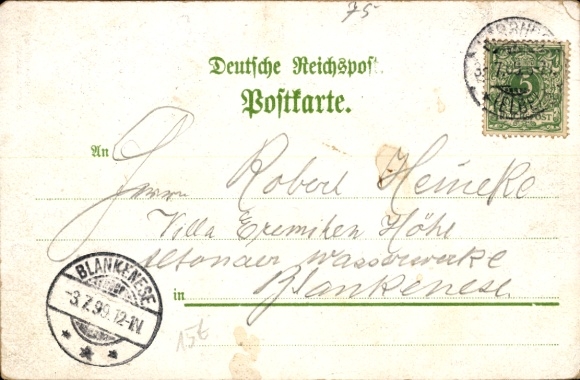 75
Deutsche Reichspost
Postkarte.
An
Herrn Robert Heineke
Villa Eremiten Höhe
Altonaer Wasserwerke
in Blankenese
BLANKENESE
-3.7.99.12-1N.
15t